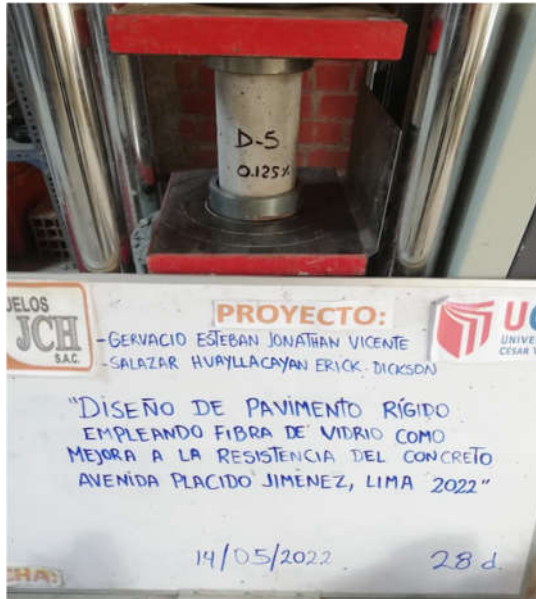 D-5
0.125%
UELOS
JCH
S.A.C.
PROYECTO:
- GERVACIO ESTEBAN JONATHAN VICENTE
- SALAZAR HUAYLLACAYAN ERICK DICKSON
UC
UNIVE
CESAR V
"DISEÑO DE PAVIMENTO RÍGIDO
EMPLEANDO FIBRA DE VIDRIO COMO
MEJORA A LA RESISTENCIA DEL CONCRETO
AVENIDA PLACIDO JIMENEZ, LIMA 2022"
14/05/2022 28 d.
CHA: